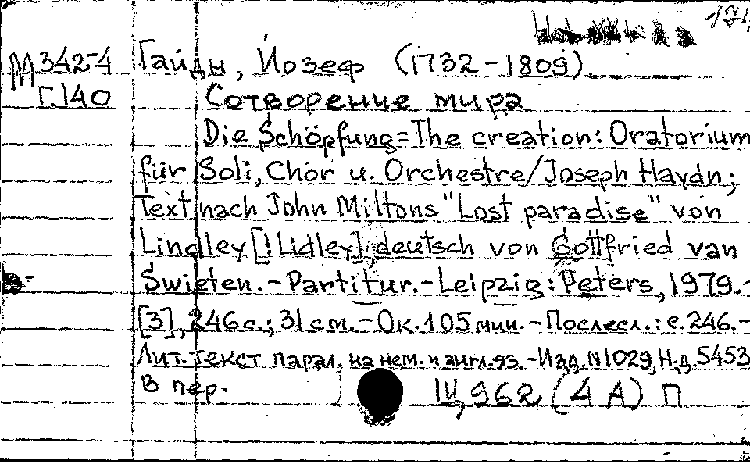 М 342-4 Гайдн, Йозеф (1732-1809)
Г.140 Сотворение мира
Die Schöpfung=The creation: Oratorium
für Soli, Chor u. Orchestre/Joseph Haydn;
Text nach John Miltons "Lost paradise" von
Lindley [! Lidley]; deutsch von Gottfried van
Swieten.-Partitur.-Leipzig: Peters, 1979.-
[3], 246 с.; 31 см.-Ок. 105 мин.-Послесл.: с. 246.-
Лит. текст парал. на нем. и англ. яз.-Изд. N 1029, Н.д. 5453
В пер.
Щ962 (4А) П